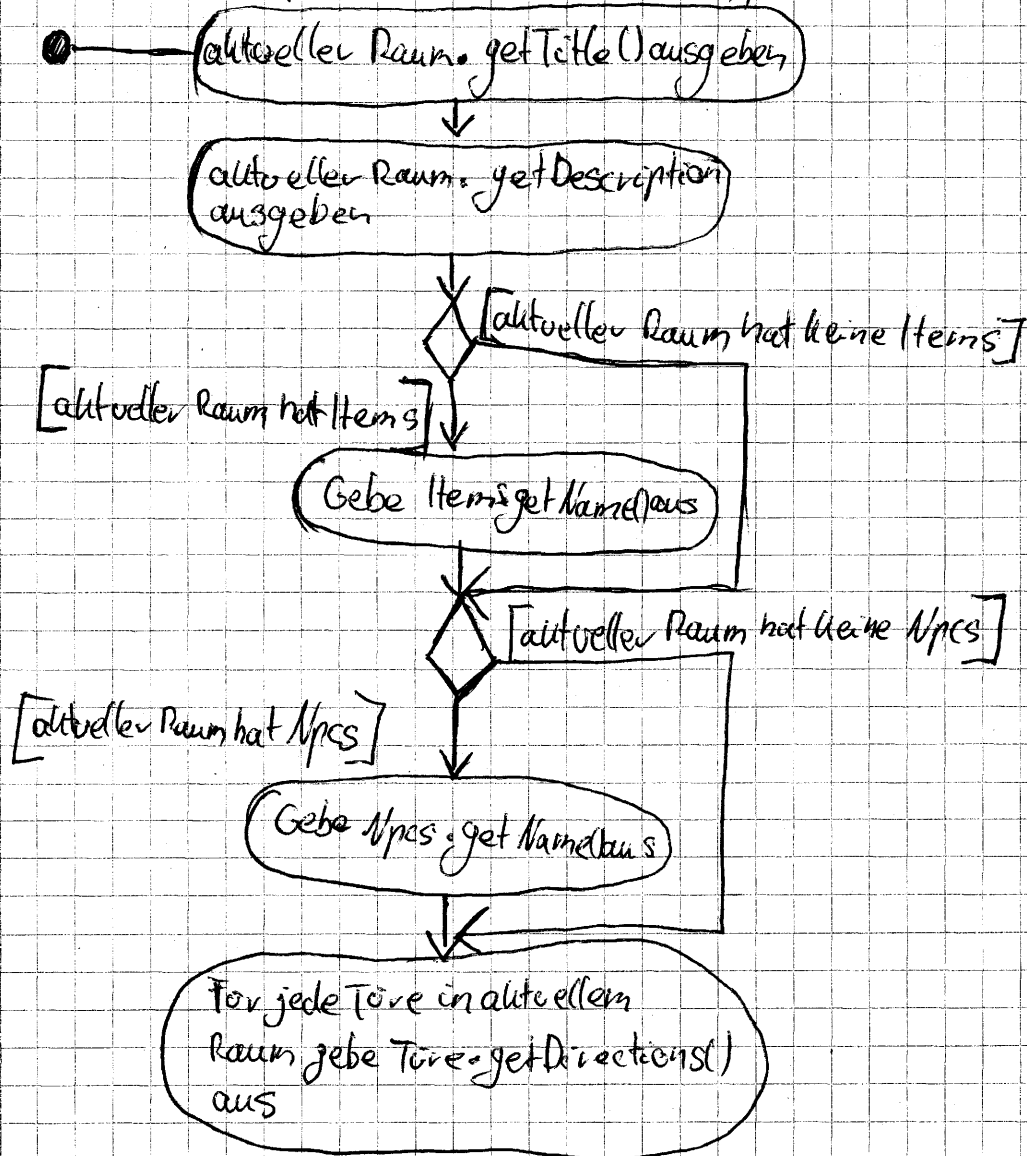 aktueller Raum.getTitle() ausgeben
aktueller Raum.getDescription
ausgeben
[aktueller Raum hat keine Items]
[aktueller Raum hat Items]
Gebe Items.getName() aus
[aktueller Raum hat keine Npcs]
[aktueller Raum hat Npcs]
Gebe Npcs.getName() aus
Für jede Türe in aktuellem
Raum gebe Türe.getDirections()
aus